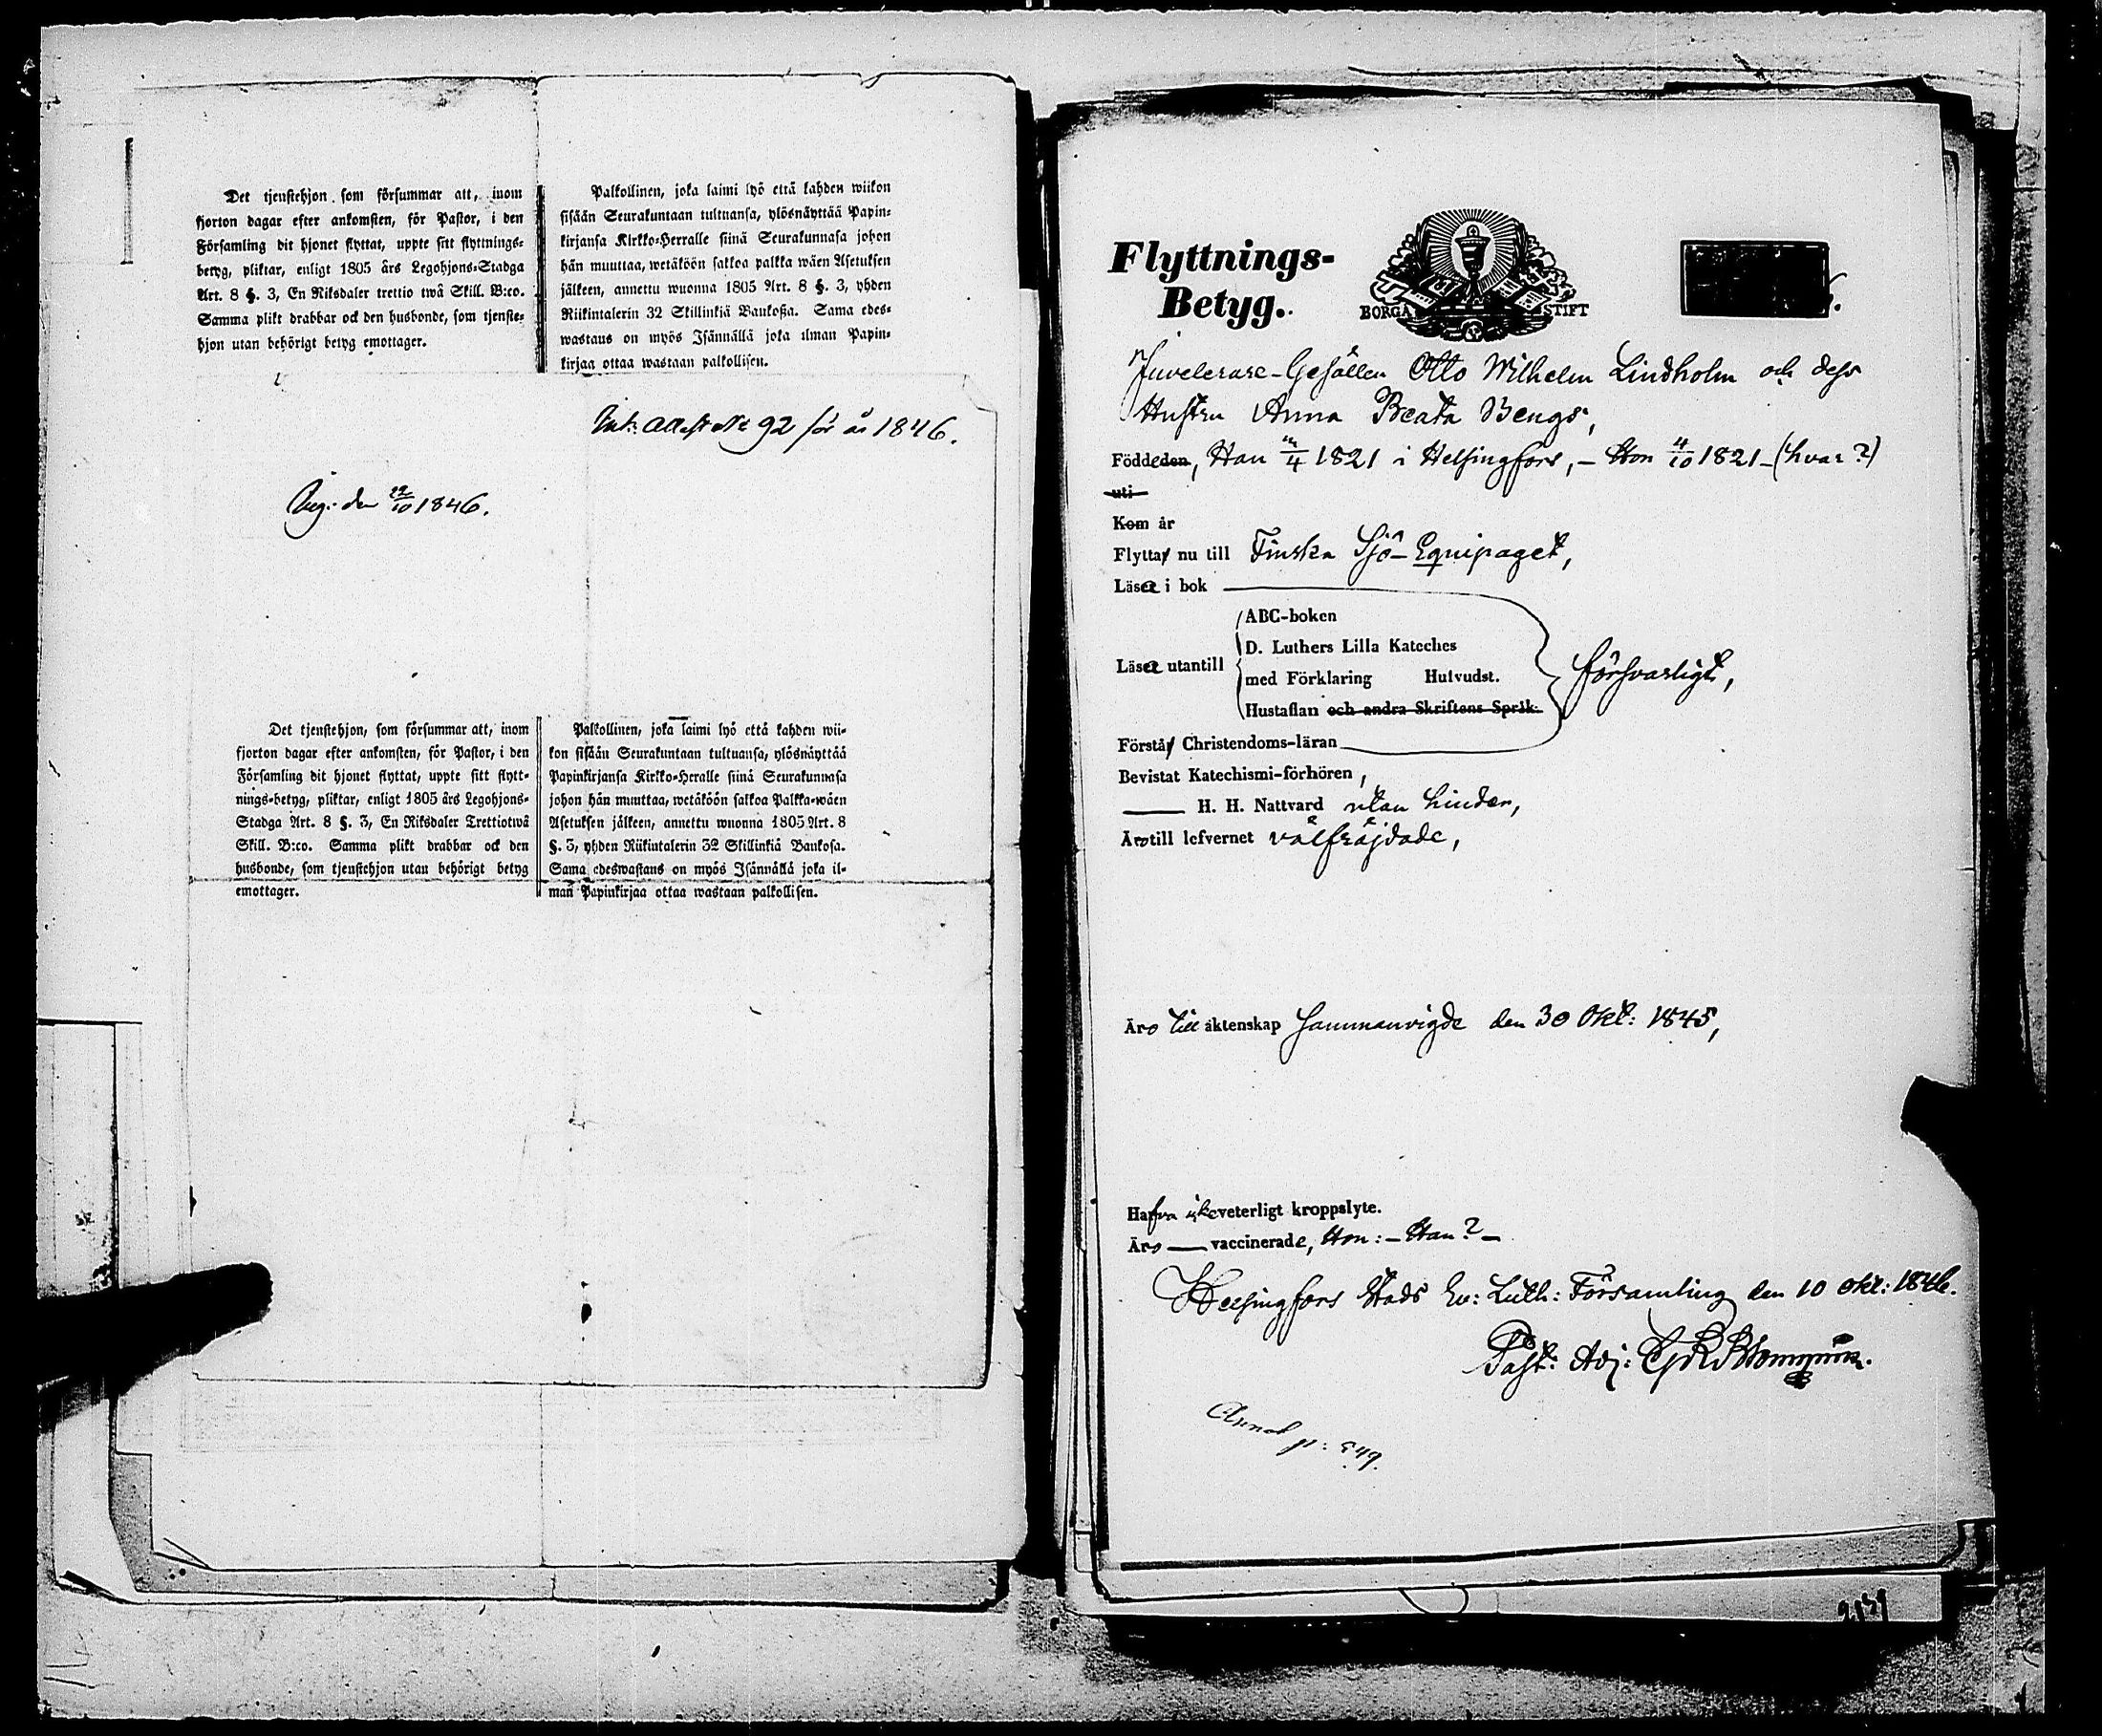 Det tjenstehjon som försummar att, inom
fjorton dagar efter ankomsten, för Pastor, i den
Församling dit hjonet flyttat, uppte sitt flyttnings-
betyg, pliktar, enligt 1805 års Legohjons-Stadga
Art. 8 §. 3, En Riksdaler trettio twå Skill. B:co.
Samma plikt drabbar ock den husbonde, som tjenste-
hjon utan behörigt betyg emottager.
Palkollinen, joka laimi lyö että kahden wiikon
sisään Seurakuntaan tultuansa, ylösnäyttää Papin-
kirjansa Kirkko-Herralle siinä Seurakunnasa johon
hän muuttaa, wetäköön sakkoa palkka wäen Asetuksen
jälkeen, annettu wuonna 1805 Art. 8 §. 3, yhden
Riikintalerin 32 Skillinkiä Bankoßa. Sama edes-
wastaus on myös Isännällä joka ilman Papin-
kirjaa ottaa wastaan palkollisen.
Ink: Attest No 92 för år 1846.
Ing: den 22/10 1846.
Det tjenstehjon, som försummar att, inom
fjorton dagar efter ankomsten, för Pastor, i den
Församling dit hjonet flyttat, uppte sitt flytt-
nings-betyg, pliktar, enligt 1805 års Legohjons-
Stadga Art. 8 §. 3, En Riksdaler Trettiotwå
Skill. B:co. Samma plikt drabbar ock den
husbonde, som tjenstehjon utan behörigt betyg
emottager.
Palkollinen, joka laimi lyö että kahden wii-
kon sisään Seurakuntaan tultuansa, ylösnäyttää
Papinkirjansa Kirkko-Heralle siinä Seurakunnasa
johon hän muuttaa, wetäköön sakkoa Palkka-wäen
Asetuksen jälkeen, annettu wuonna 1805 Art. 8
§. 3, yhden Riikintalerin 32 Skillinkiä Bankosa.
Sama edeswastaus on myös Isännällä joka il-
man Papinkirjaa ottaa wastaan palkollisen.
Flyttnings-
Betyg.
BORGÅ STIFT
Juvelerare-Gesällen Otto Wilhelm Lindholm och dess
Hustru Anna Beata Bengs,
Födde den, Han /4 1821 i Helsingfors, – Hon 4/10 1821 – (hvar?)
uti
Kom år
Flytta nu till Finska Sjö-Equipaget,
Läsa i bok
ABC-boken
D. Luthers Lilla Kateches
Läsa utantill
med Förklaring Hufvudst.
försvarligt,
Hustaflan och andra Skriftens Språk.
Förstå Christendoms-läran
Bevistat Katechismi-förhören,
H. H. Nattvard utan hinder,
Äro till lefvernet välfräjdade,
Äro till äktenskap Sammanvigde den 30 Okt: 1845,
Hafva icke veterligt kroppslyte.
Äro — vaccinerade, Hon: – Han? –
Helsingfors Stads Ev: Luth: Församling den 10 Okt: 1846.
Past: Adj:
Annot p: 549.